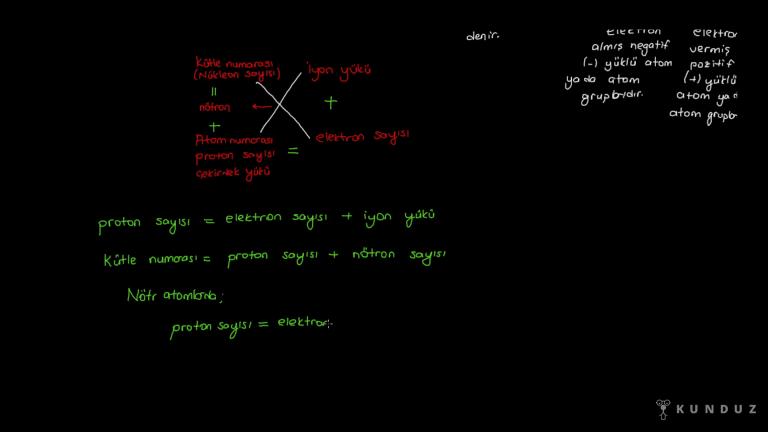 denir.
elektron
almış negatif
(-) yüklü atom
ya da atom
gruplarıdır.
elektro
vermiş
pozitif
(+) yüklü
atom ya
atom grupla
Kütle numarası
(Nükleon sayısı)
=
nötron
+
Atom numarası
proton sayısı
çekirdek yükü
iyon yükü
+
elektron sayısı
=
proton sayısı = elektron sayısı + iyon yükü
Kütle numarası = proton sayısı + nötron sayısı
Nötr atomlarda;
proton sayısı = elektron
KUNDUZ